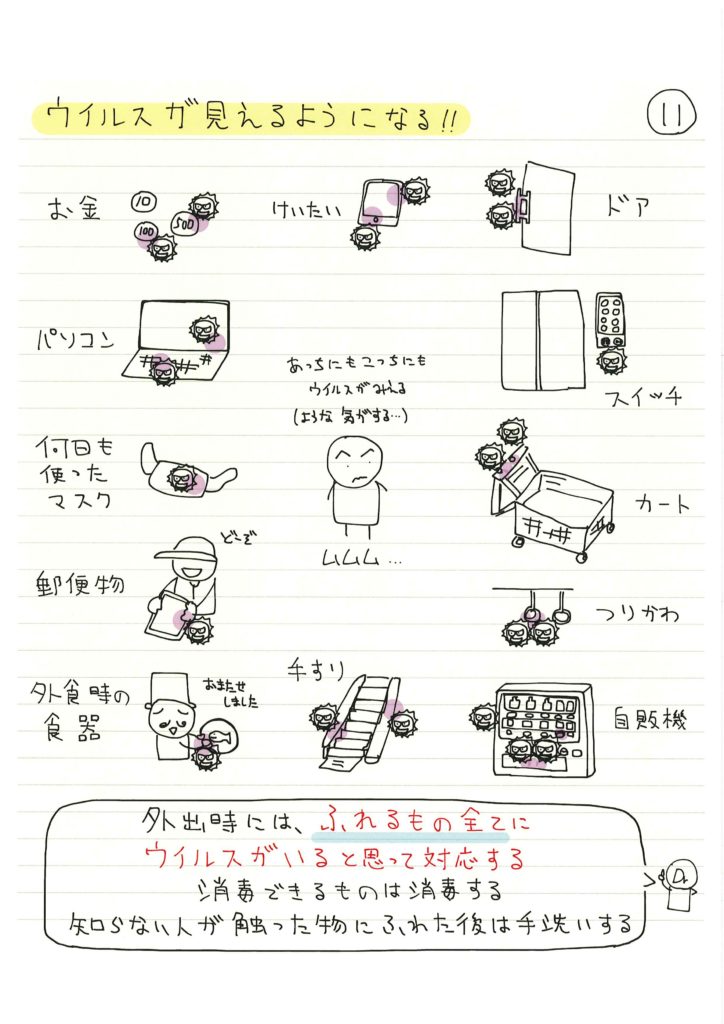 ウイルスが見えるようになる!!
11
お金
10
100
500
けいたい
ドア
パソコン
あっちにもこっちにも
ウイルスがみえる
(ような気がする…)
スイッチ
何日も
使った
マスク
ムムム…
カート
郵便物
どーぞ
つりかわ
外食時の
食器
おまたせ
しました
手すり
自販機
外出時には、ふれるもの全てに
ウイルスがいると思って対応する
消毒できるものは消毒する
知らない人が触った物にふれた後は手洗いする
Dr